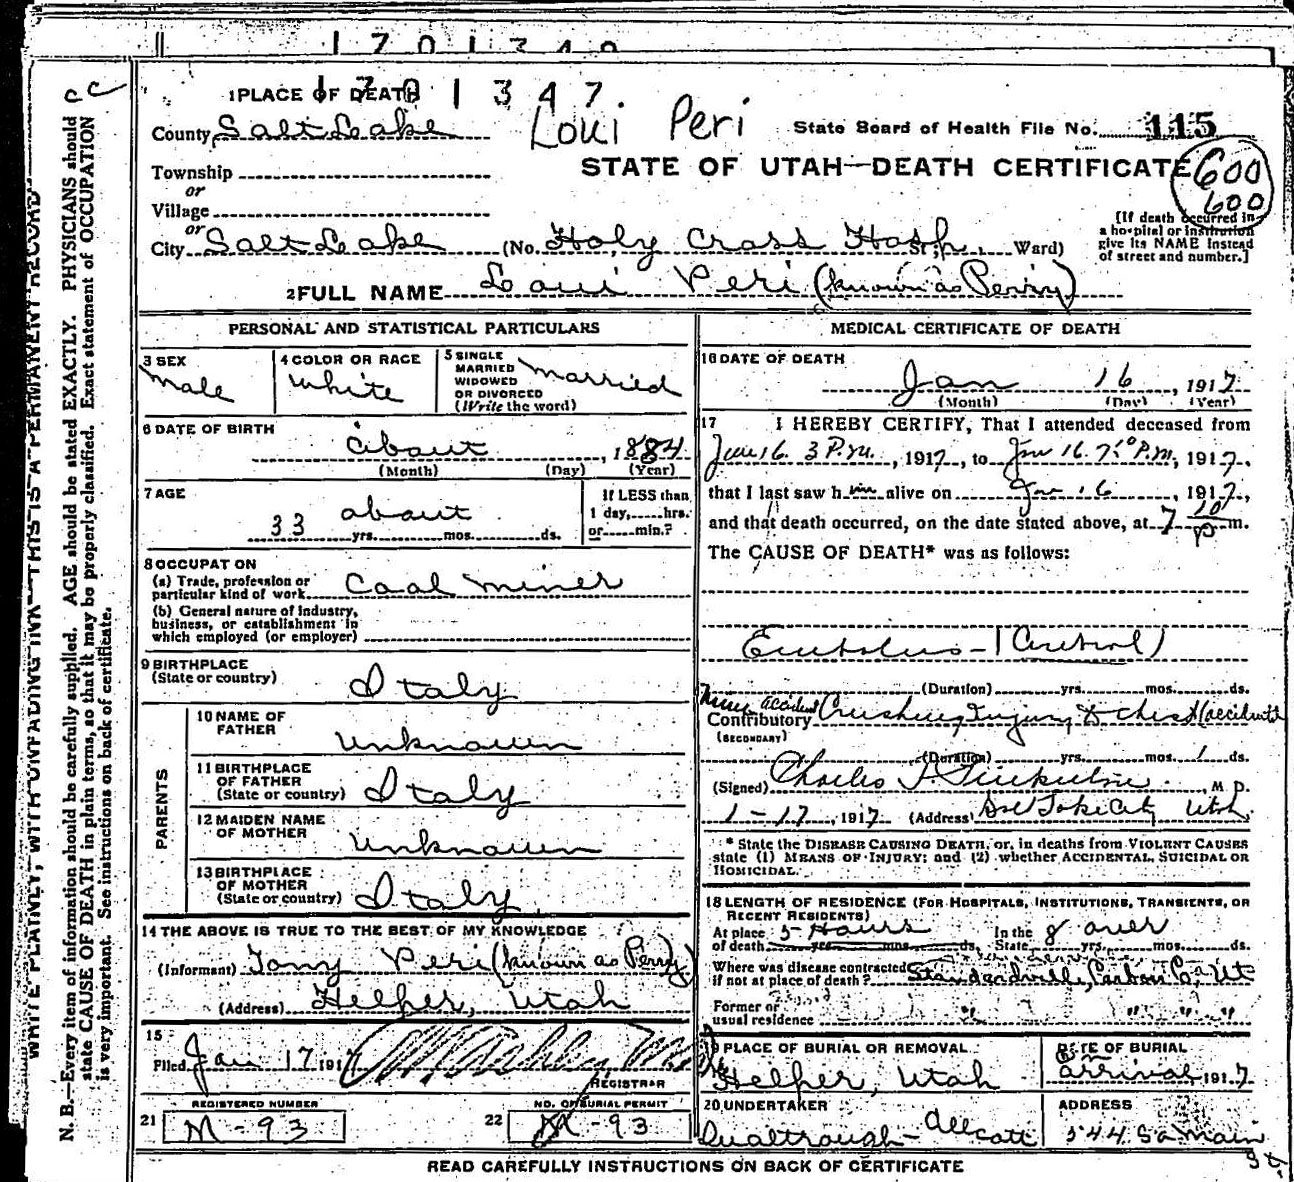 1701347.
1 PLACE OF DEATH
County Salt Lake
Loui Peri
State Board of Health File No. 115
STATE OF UTAH—DEATH CERTIFICATE
600
600
Township
or
Village
or
City Salt Lake (No. Holy Cross Hosp. St., Ward)
[If death occurred in
a hospital or institution
give its NAME instead
of street and number.]
2 FULL NAME Loui Peri (known as Perry)
PERSONAL AND STATISTICAL PARTICULARS
3 SEX
Male
4 COLOR OR RACE
White
5 SINGLE
MARRIED
WIDOWED
OR DIVORCED
(Write the word)
Married
6 DATE OF BIRTH
about, 1884
(Month) (Day) (Year)
7 AGE
about
33 yrs. mos. ds.
If LESS than
1 day, hrs.
or min.?
8 OCCUPATION
(a) Trade, profession or
particular kind of work Coal Miner
(b) General nature of industry,
business, or establishment in
which employed (or employer)
9 BIRTHPLACE
(State or country) Italy
PARENTS
10 NAME OF
FATHER Unknown
11 BIRTHPLACE
OF FATHER
(State or country) Italy
12 MAIDEN NAME
OF MOTHER Unknown
13 BIRTHPLACE
OF MOTHER
(State or country) Italy
14 THE ABOVE IS TRUE TO THE BEST OF MY KNOWLEDGE
(Informant) Tony Peri (known as Perry)
(Address) Helper, Utah
15
Filed Jan 17 1917
REGISTRAR
REGISTERED NUMBER
21 M-93
NO. OF BURIAL PERMIT
22 M-93
MEDICAL CERTIFICATE OF DEATH
16 DATE OF DEATH
Jan 16, 1917
(Month) (Day) (Year)
17 I HEREBY CERTIFY, That I attended deceased from
16. 3 P.M., 1917, to Jan 16. 7:10 P.M., 1917,
that I last saw him alive on Jan 16, 1917,
and that death occurred, on the date stated above, at 7 10 p m.
The CAUSE OF DEATH* was as follows:
Embolus - (Cerebral)
(Duration) yrs. mos. ds.
Mine accident
Contributory Crushing Injury to chest (accidental
(SECONDARY)
(Duration) yrs. mos. 1 ds.
(Signed) Charles M. D.
1-17, 1917 (Address) Salt Lake City Utah.
* State the DISEASE CAUSING DEATH, or, in deaths from VIOLENT CAUSES
state (1) MEANS OF INJURY; and (2) whether ACCIDENTAL, SUICIDAL OR
HOMICIDAL.
18 LENGTH OF RESIDENCE (FOR HOSPITALS, INSTITUTIONS, TRANSIENTS, OR
RECENT RESIDENTS)
At place 5 Hours In the 8 over
of death yrs. mos. ds. State yrs. mos. ds.
Where was disease contracted
if not at place of death? Standardville, Carbon Co., Ut
Former or
usual residence " " " "
PLACE OF BURIAL OR REMOVAL
Helper, Utah
DATE OF BURIAL
on
arrival 1917
20 UNDERTAKER
Qualtrough-Allcott
ADDRESS
544 So Main
St.
READ CAREFULLY INSTRUCTIONS ON BACK OF CERTIFICATE
WRITE PLAINLY, WITH UNFADING INK—THIS IS A PERMANENT RECORD
N. B.—Every item of information should be carefully supplied. AGE should be stated EXACTLY. PHYSICIANS should
state CAUSE OF DEATH in plain terms, so that it may be properly classified. Exact statement of OCCUPATION
is very important. See instructions on back of certificate.